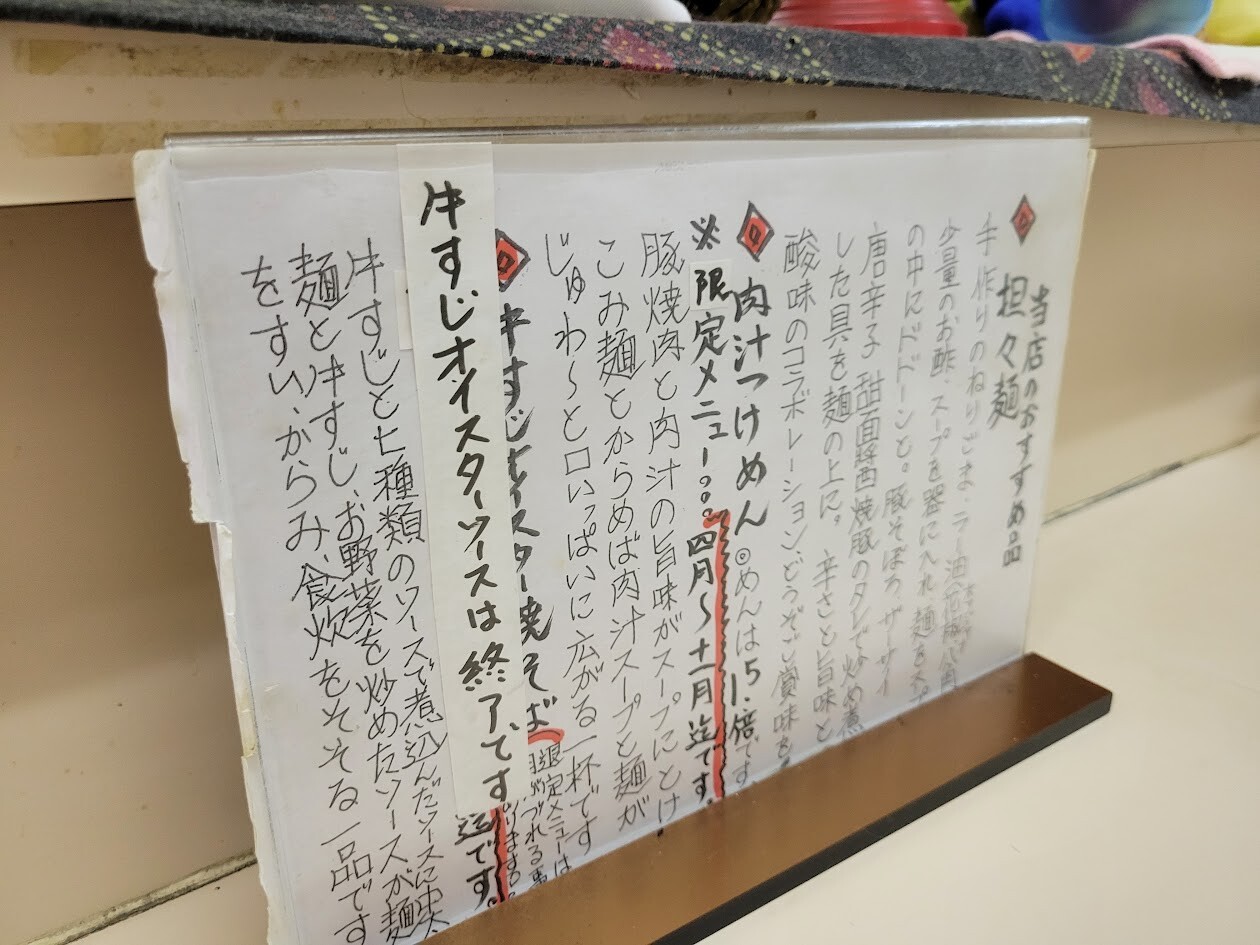 当店のおすすめ品
担々麺
手作りのねりごま、ラー油
少量のお酢、スープを器に入れ麺を
の中にドドーンと。豚そぼろ、ザーサイ
唐辛子 甜面醤 焼豚のタレで炒め煮
した具を麺の上に。辛さと旨味と
酸味のコラボレーション、どうぞご賞味を
肉汁つけめん ◎めんは1.5倍です
※限定メニュー。。。四月〜十一月迄です。
豚焼肉と肉汁の旨味がスープにとけ
こみ麺とからめば肉汁スープと麺が
じゅわ〜と口いっぱいに広がる一杯です
牛すじオイスター焼そば
限定メニューは
迄です。
牛すじオイスターソースは終了です
牛すじと七種類のソースで煮込んだソースに中太
麺と牛すじ、お野菜を炒めたソースが麺
をすい、からみ、食欲をそそる一品です